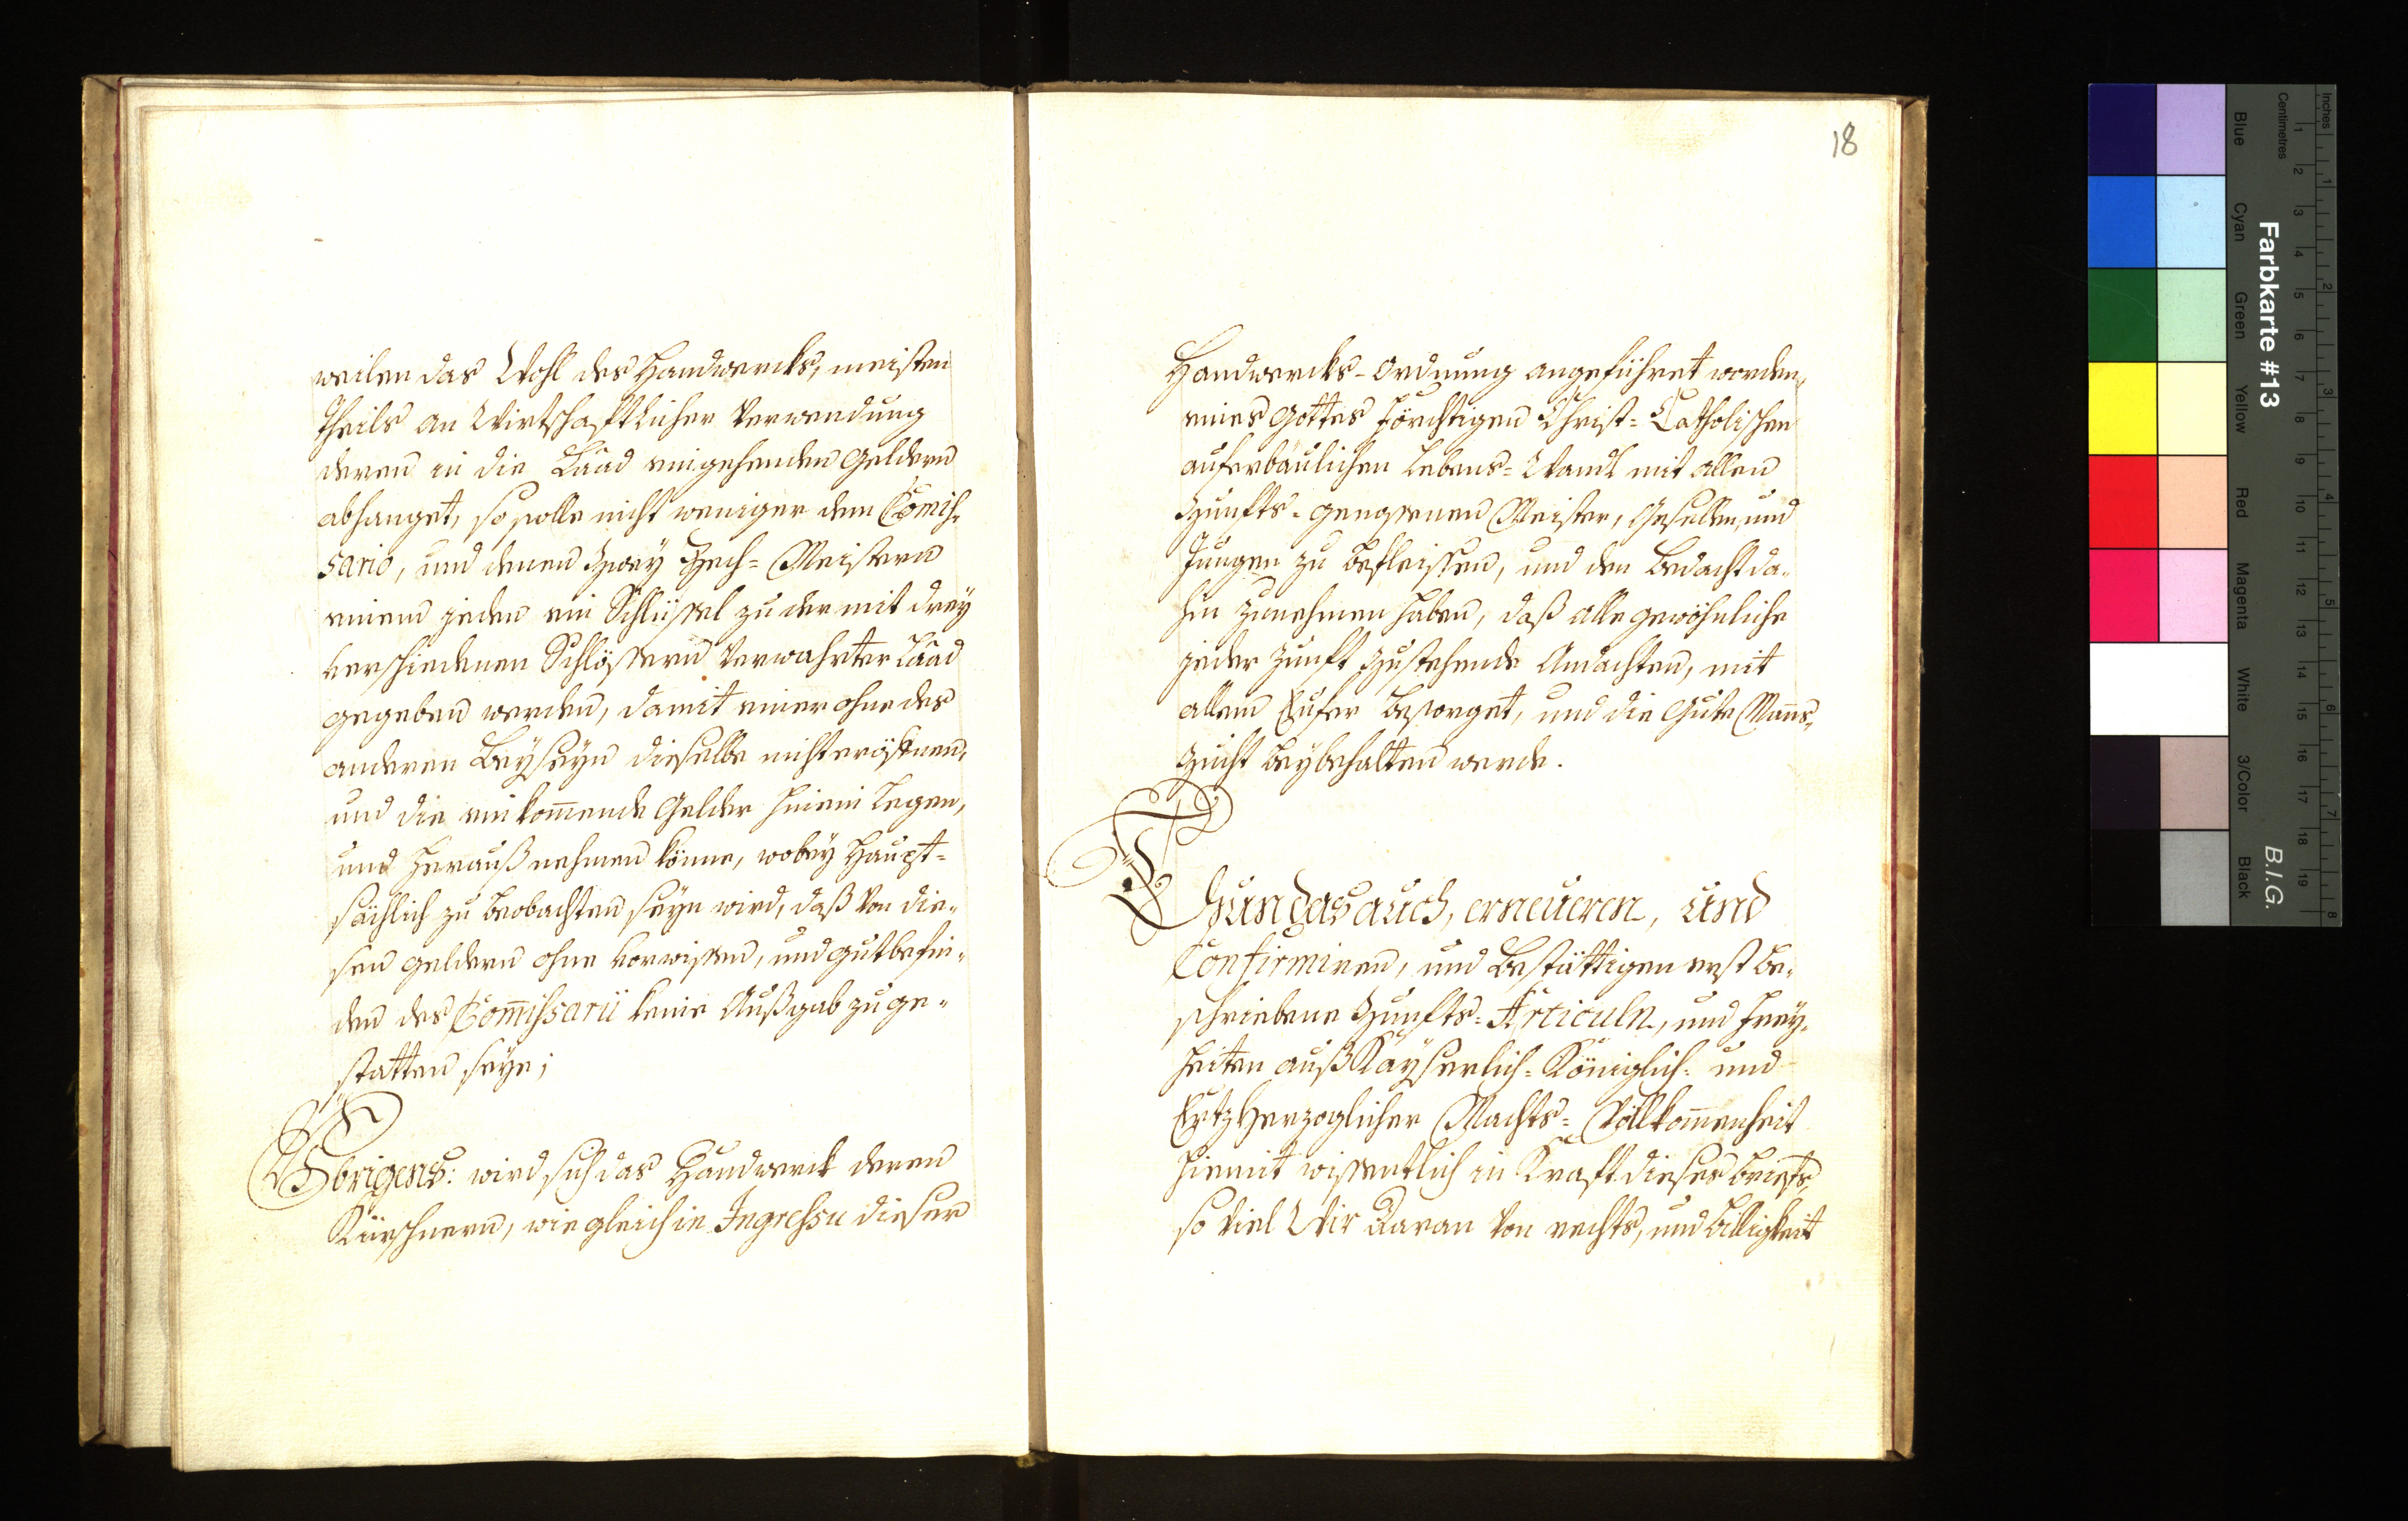 weilen das Wohl des Handwercks, meisten
Theils an Wirtschafftlicher Verwendung
deren in die Laad eingehenden Geldern
abhanget, so solle nicht weniger dem Com̄is-
sario, und denen Zwey Zech= Meistern
einem jeden ein Schlüssel zu der mit drey
verschiedenen Schlössern Verwahrter Laad
gegeben werden, damit einer ohne des
anderen Beyseyn dieselbe nicht eröffnen,
und die einkom̄ende Gelder hinein Legen,
und herauß nehmen könne, wobey Haupt=
sächlich zu beobachten seyn wird, daß Von die-
sen geldern ohne Vorwissen, und gutbefin-
den des Com̄issarii keine Außgab zu ge-
statten seye;
Übrigens: wird sich das Handwerck deren
Kürschnern, wie gleich in Ingressu dieser
18
Handwercks-Ordnung angeführet worden,
eines Gottes Förchtigen Christ= Catholischen
auferbäulichen Lebens= Wandl mit allen
Zunfts= genossenen Meister, Gesellen, und
Jungen zu befleissen, und den Bedacht da-
hin zunehmen haben, daß alle gewöhnliche
jeder Zunft Zustehende Andachten, mit
allem Eyfer besorget, und die Gute Man̄s-
Zucht beybehalten werde.
Thun das auch, erneueren, und
Confirmiren, und Bestättigen erst be-
schriebene Zunfts= Articuln, und Frey-
heiten auß Kayserlich= Königlich= und
Ertzherzoglicher Machts= Vollkom̄enheit
hiemit wissentlich in Kraft dieses briefs,
so Viel Wir Daran Von rechts, und Billigkeit
Farbkarte #13
B.I.G.
Blue
Cyan
Green
Yellow
Red
Magenta
White
3/Color
Black
Inches
Centimetres
1 2 3 4 5 6 7 8 9 10 11 12 13 14 15 16 17 18 19
1 2 3 4 5 6 7 8